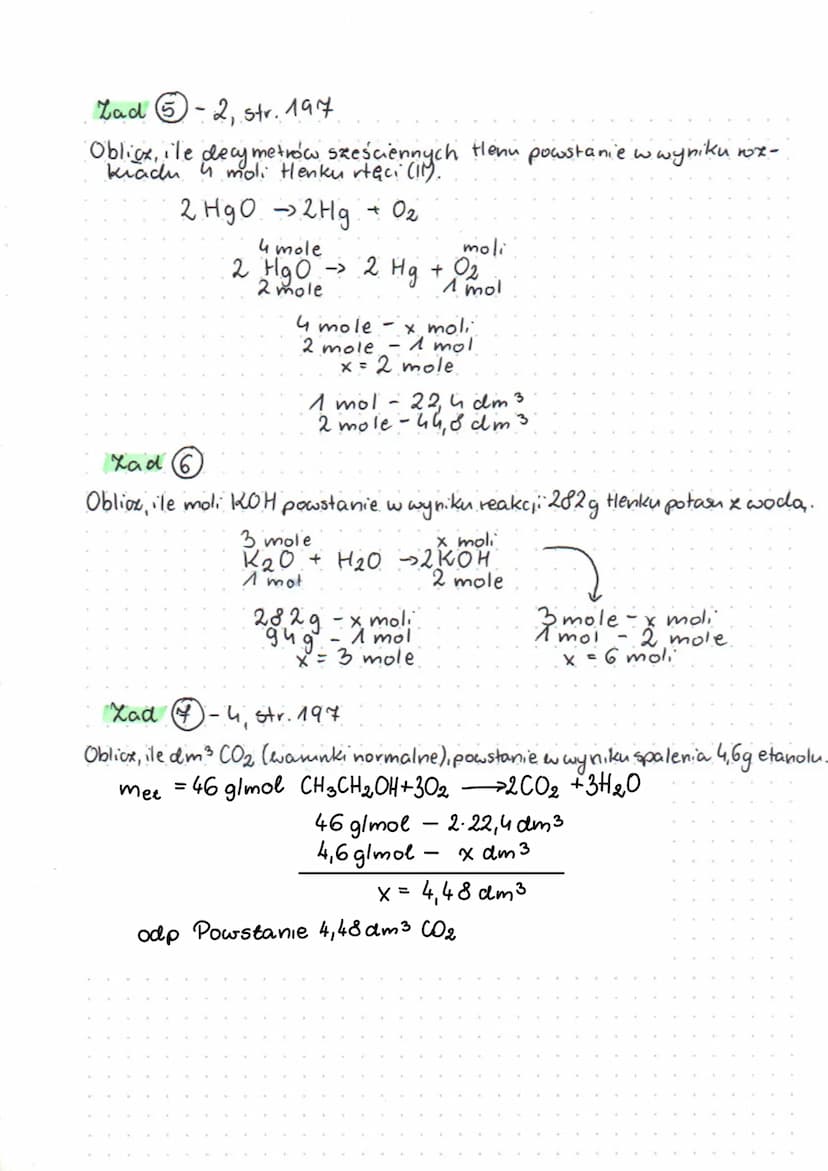 Zad 5 - 2, str. 197
Oblicz, ile decymetrów sześciennych tlenu powstanie w wyniku roz-
kładu 4 moli tlenku rtęci (II).
2 HgO → 2Hg + O2
4 mole moli
2 HgO → 2 Hg + O2
2 mole 1 mol
4 mole - x moli
2 mole - 1 mol
x = 2 mole
1 mol - 22,4 dm³
2 mole - 44,8 dm³
Zad 6
Oblicz, ile moli KOH powstanie w wyniku reakcji 282g tlenku potasu z wodą.
3 mole x moli
K2O + H2O → 2KOH
1 mol 2 mole
282g - x moli 3 mole - x moli
94g - 1 mol 1 mol - 2 mole
x = 3 mole x = 6 moli
Zad 7 - 4, str. 197
Oblicz, ile dm³ CO2 (warunki normalne), powstanie w wyniku spalenia 4,6g etanolu.
met = 46 g/mol CH3CH2OH+3O2 → 2CO2 + 3H2O
46 g/mol - 2·22,4 dm³
4,6 g/mol - x dm³
x = 4,48 dm³
odp Powstanie 4,48 dm³ CO2